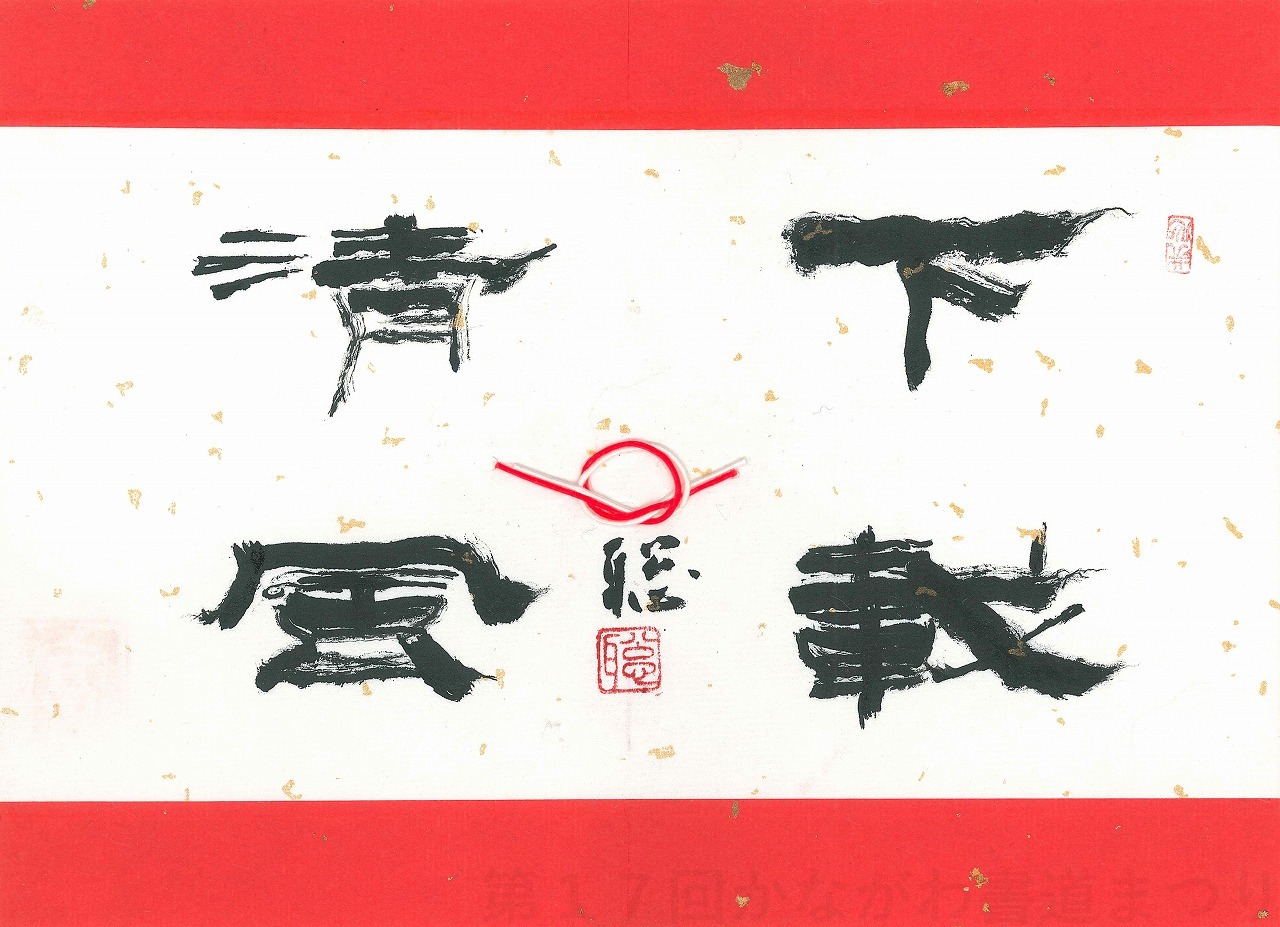 下載
清風
聡
聡
第17回かながわ書道まつり